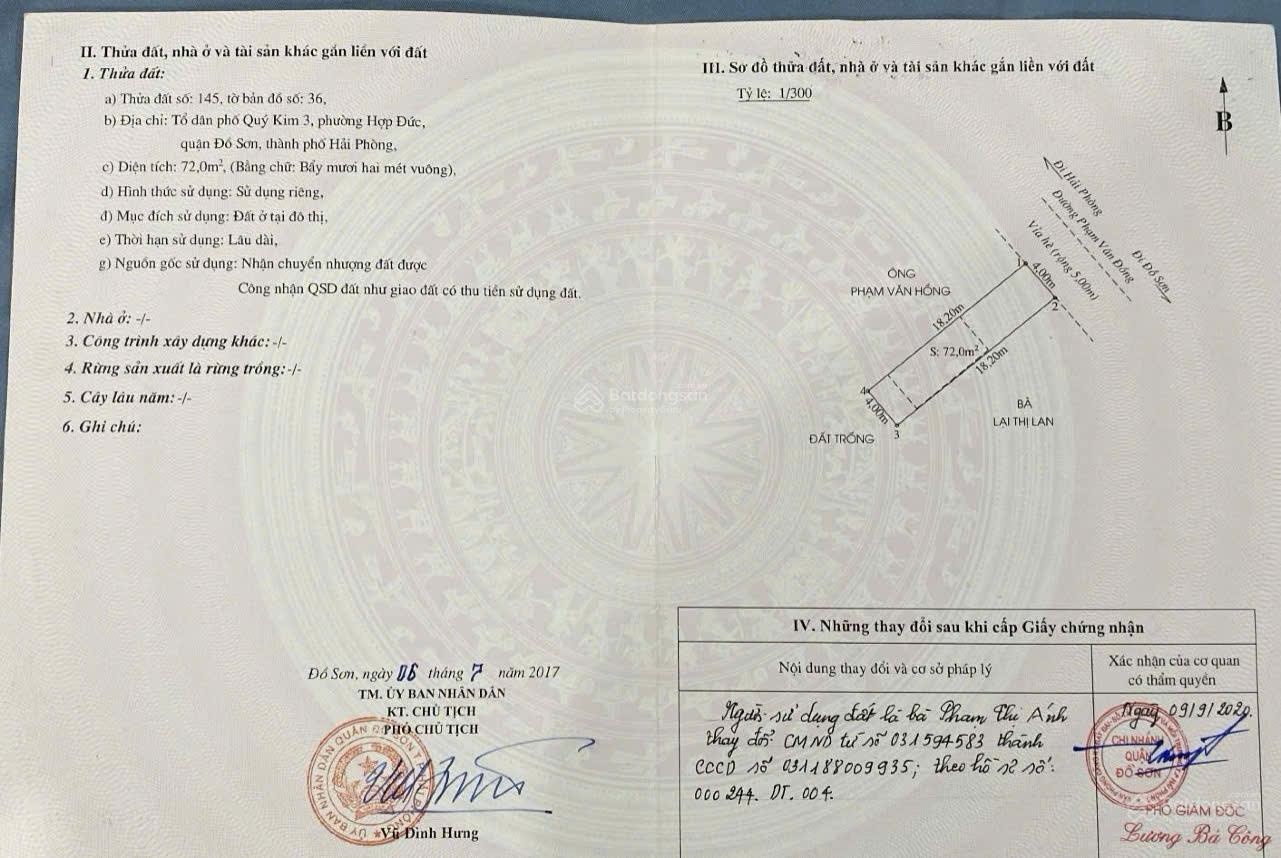 II. Thửa đất, nhà ở và tài sản khác gắn liền với đất
1. Thửa đất:
a) Thửa đất số: 145, tờ bản đồ số: 36,
b) Địa chỉ: Tổ dân phố Quý Kim 3, phường Hợp Đức,
quận Đồ Sơn, thành phố Hải Phòng,
c) Diện tích: 72,0m², (Bằng chữ: Bẩy mươi hai mét vuông),
d) Hình thức sử dụng: Sử dụng riêng,
đ) Mục đích sử dụng: Đất ở tại đô thị,
e) Thời hạn sử dụng: Lâu dài,
g) Nguồn gốc sử dụng: Nhận chuyển nhượng đất được
Công nhận QSD đất như giao đất có thu tiền sử dụng đất.
2. Nhà ở: -/-
3. Công trình xây dựng khác: -/-
4. Rừng sản xuất là rừng trồng: -/-
5. Cây lâu năm: -/-
6. Ghi chú:
Đồ Sơn, ngày 06 tháng 7 năm 2017
TM. ỦY BAN NHÂN DÂN
KT. CHỦ TỊCH
PHÓ CHỦ TỊCH
Vũ Đình Hưng
III. Sơ đồ thửa đất, nhà ở và tài sản khác gắn liền với đất
Tỷ lệ: 1/300
B
Đi Hải Phòng
Đường Phạm Văn Đồng
Đi Đồ Sơn
Vỉa hè (rộng 5,00m)
1
4,00m
2
ÔNG
PHẠM VĂN HỒNG
18,20m
S: 72,0m²
18,20m
4
4,00m
3
BÀ
LẠI THỊ LAN
ĐẤT TRỐNG
Batdongsan
IV. Những thay đổi sau khi cấp Giấy chứng nhận
Nội dung thay đổi và cơ sở pháp lý
Xác nhận của cơ quan
có thẩm quyền
Người sử dụng đất là bà Phạm Thị Ánh
thay đổi CMND từ số 031594583 thành
CCCD số 031188009935; theo hồ sơ số:
000244. DT. 004.
Ngày 09/9/2020.
CHI NHÁNH
QUẬN
ĐỒ SƠN
PHÓ GIÁM ĐỐC
Lương Bá Công